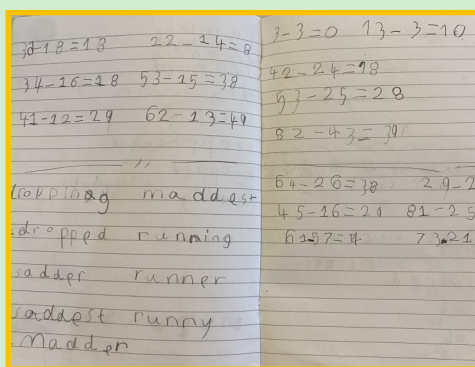 18=18 22-14=8
34-16=18 53-15=38
41-12=29 62-13=49
dropping maddest
dropped running
sadder runner
saddest runny
madder
3-3=0 13-3=10
42-24=18
53-25=28
82-43=39
64-26=38 29-2
45-16=29 81-25
73.21